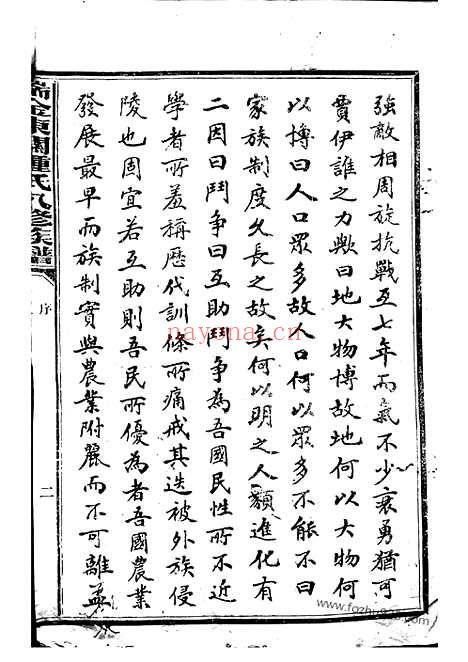 強敵相周旋抗戰互七年而氣不少衰勇猶可
賈伊誰之力歟曰地大物博故地何以大物何
以博曰人口眾多故人口何以眾多不能不曰
家族制度久長之故矣何以明之人類進化有
二因曰鬥爭曰互助鬥爭為吾國民性所不近
學者所羞稱歷代訓條所痛戒其迭被外族侵
陵也固宜若互助則吾民所優為者吾國農業
發展最早而族制實與農業附麗而不可離蓋
瑞金東關鍾氏八修族譜
序
二
nayona.cn
www.fozhu920.com